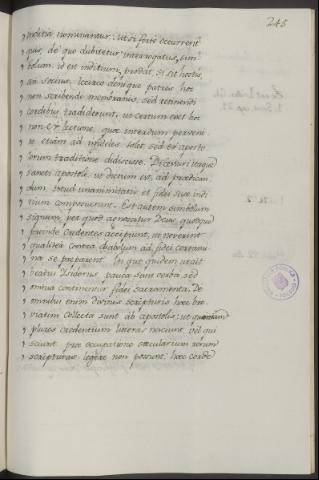 245
, inditia nominantur: ut si forte occurrerit
, quis, de quo dubitetur interrogatus, sim-
, bolum, id est inditium, prodat, si sit hostis,
, an socius, Iccirco denique patres hoc
, non scribendi membranis, sed retinendi
, cordibus tradiderunt, ut certum esset hoc
, non ex lectione, quae interdum perveni-
, re etiam ad infideles solet, sed ex aposto
, lorum traditione didicisse. Discessuri itaque
, sancti Apostoli, ut dictum est, ad praedican
, dum, istud unanimitatis et fidei suae indi
, tium composuerunt. Est autem simbolum
, signum, per quod agnoscatur Deus, quodque
, proinde credentes accipiunt, ut noverint
, qualiter contra diabolum ad fidei certami
, na se preparent. In quo quidem ut ait
, beatus Isidorus pauca sunt verba sed
, omnia continentur fidei sacramenta. De
, omnibus enim divinis scripturis haec bre
, viatim collecta sunt ab apostolis; ut quoniam
, plures credentium literas nesciunt, vel qui
, sciunt, prae occupatione saecularium rerum
, scripturas legere non possunt, haec corde